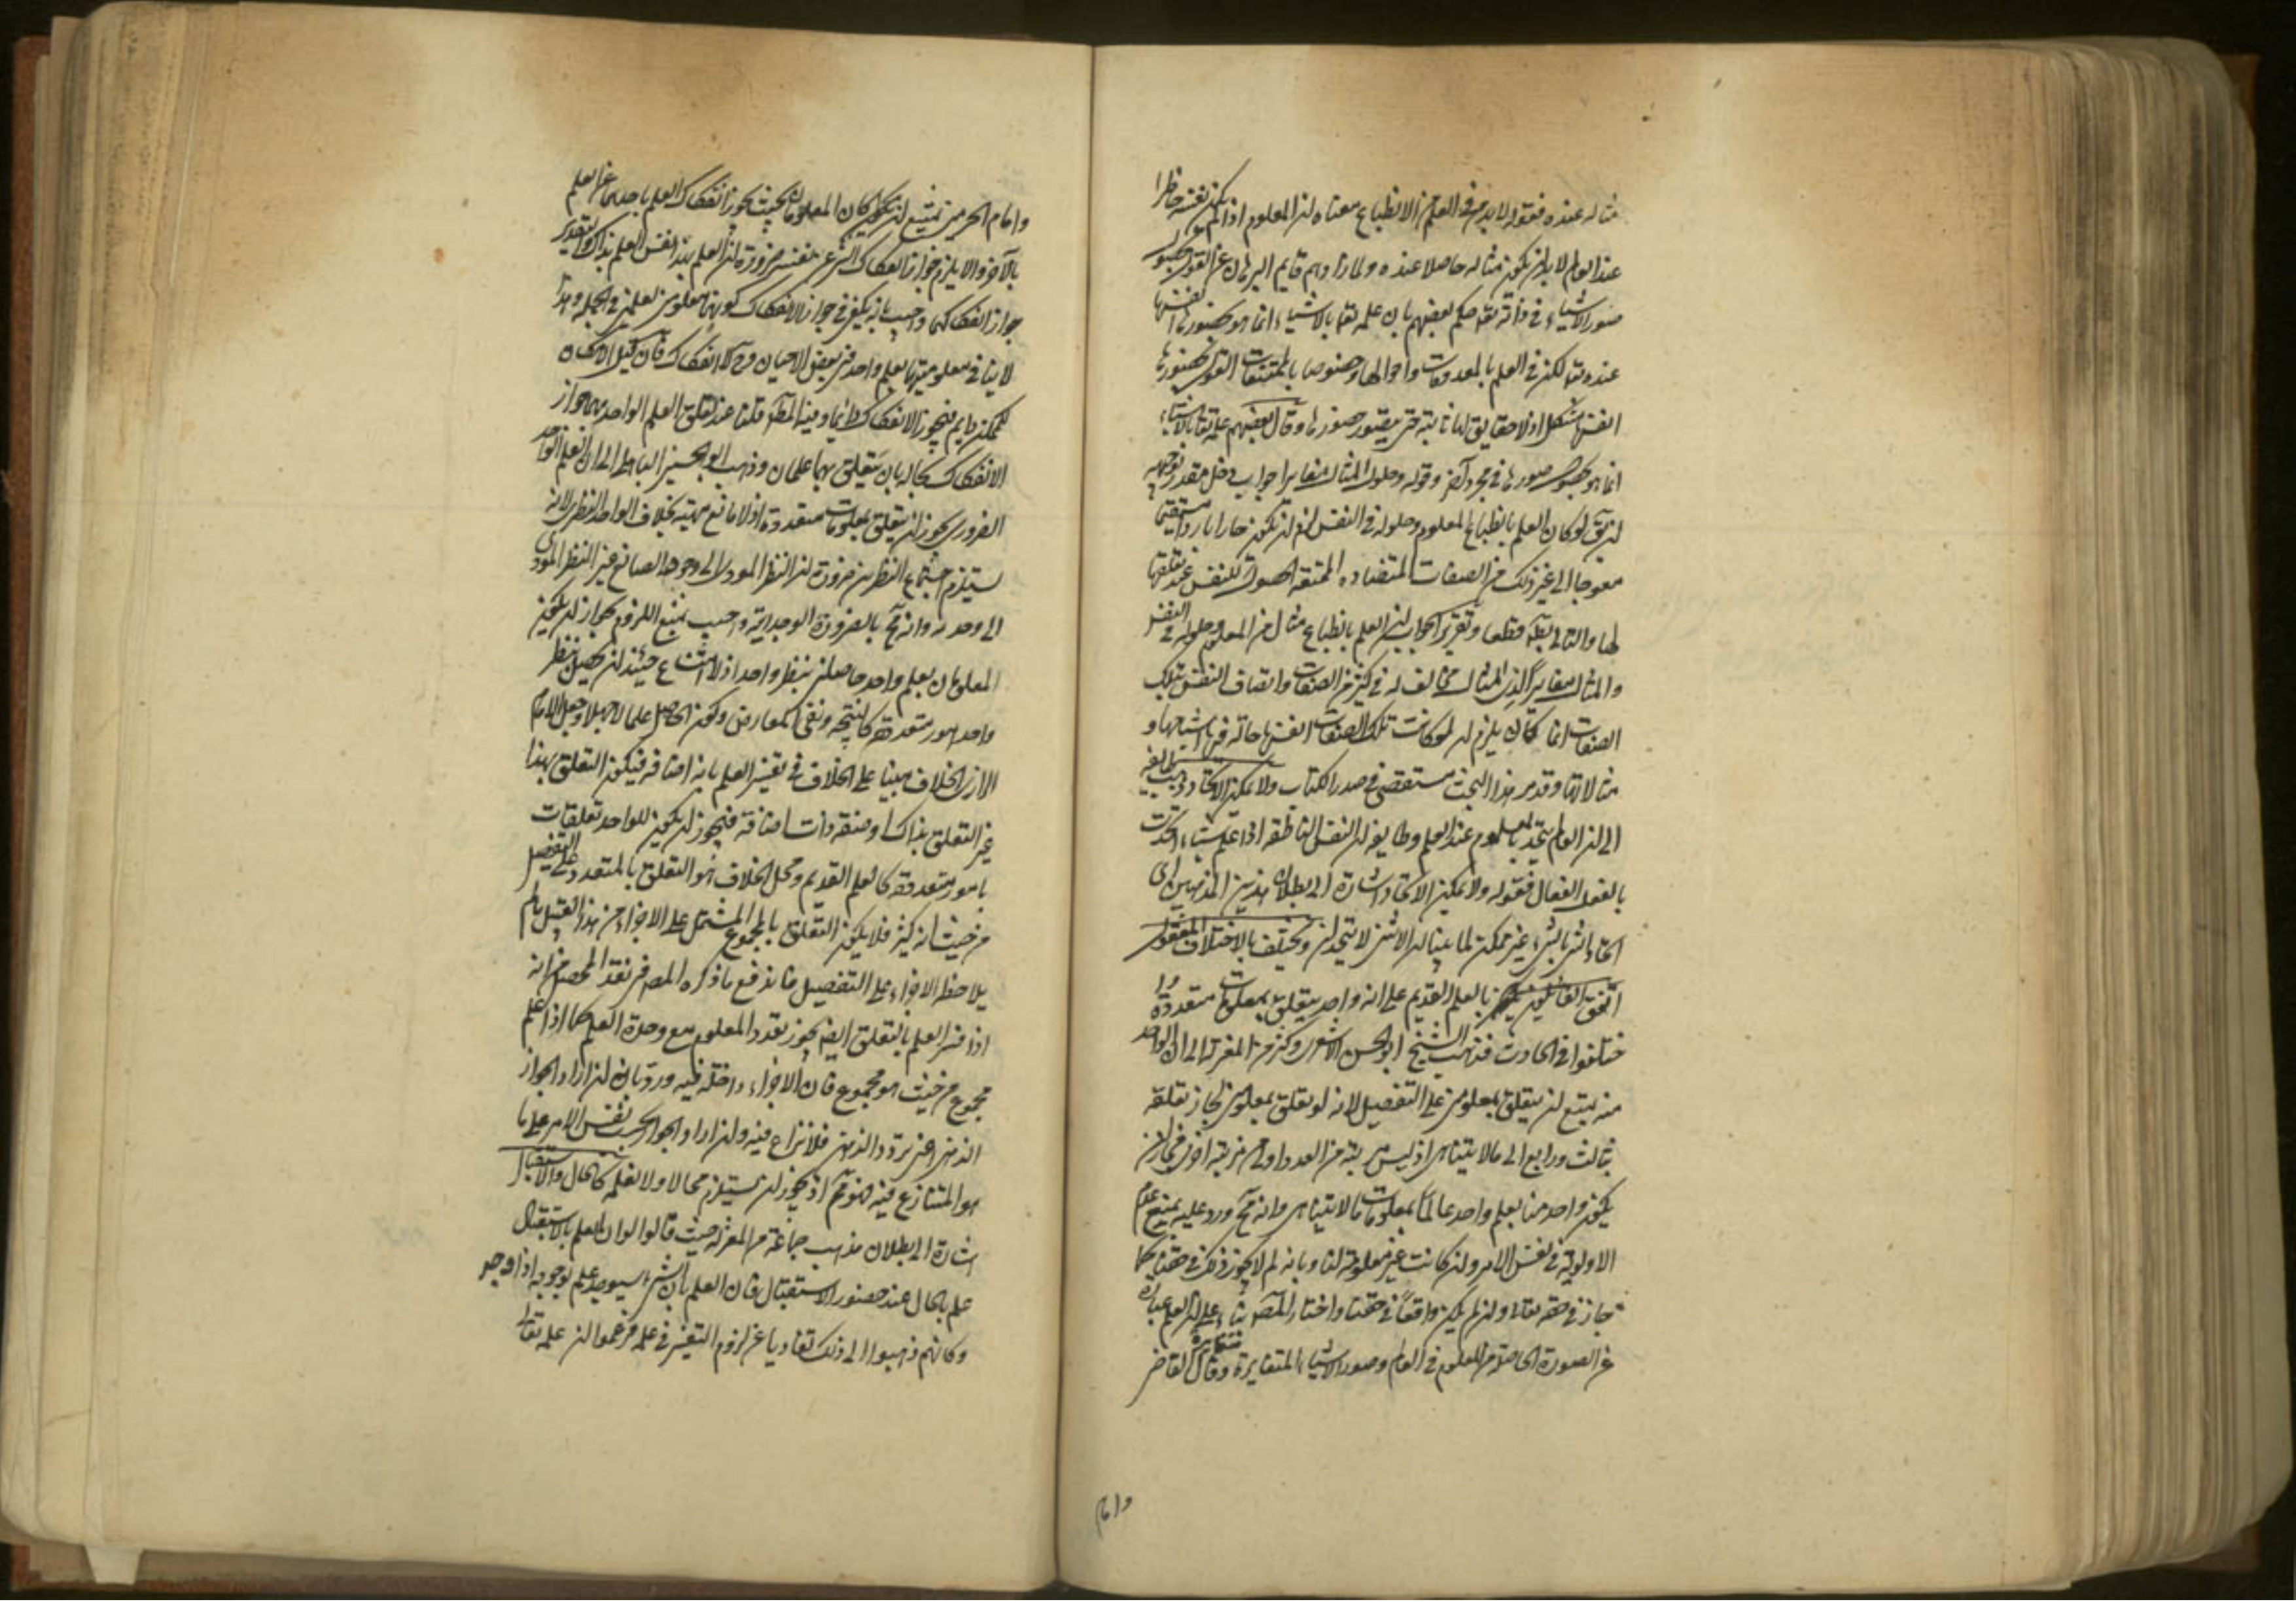 مثاله عنده فقوله لابد فى العلم من الانطباع معناه ان المعلوم اذا لم يكن نفسه حاضرا
عند العالم لابد ان يكون مثاله حاصلا عنده ولما زادهم قايم البرهان عن القول بحصول
صور الاشياء فى ذاته تعا حكم بعضهم بان علمه تعا بالاشياء انما هو بحضورها انفسها
عنده تعا لكن فى العلم بالمعدومات واحوالها وخصوصا بالممتنعات القول بحضورها
انفسها مشكل اذ لا حقايق لها ثابتة حتى يتصور حضورها وقال بعضهم علمه تعا بالاشياء
انما هو بحصول صورها فى مجرد آخر وقوله وحلول المثال مغايرا جواب دخل مقدر توجيهه
ان يق لو كان العلم بانطباع المعلوم وحلوله فى النفس لزم ان تكون حارا باردا مستقيما
معوجا الى غير ذلك من الصفات المتضاده الممتنعة الحصول للنفس عند تعلقها
لها والتالى بط قطعا وتقرير الجواب ان العلم بانطباع مثال من المعلوم وحلوله فى النفس
والمثال مغايرا لذى المثال مخالف له فى كثير من الصفات واتصاف النفس بتلك
الصفات انما كان يلزم ان لو كانت تلك الصفات انفسها حالة فيها اشباحها و
مثالاتها وقد مر هذا البحث مستقصى فى صدر الكتاب ولا يمكن الاتحاد ذهب طايفة
الى ان العالم يتحد بالمعلوم عند العلم وطايفة ان النفس الناطقة اذا علمت شيئا اتحدت
بالعقل الفعال فقوله ولا يمكن الاتحاد اشارة الى بطلان هذين المذهبين اى
اتحاد الشئ بالشئ غير ممكن لما بينا ان الاثنين لا يتحدان ويختلف باختلاف المعقول
اتفق القائلون بالعلم القديم على انه واحد يتعلق بمعلومات متعددة وا
ختلفوا فى الحادث فذهب الشيخ ابو الحسن الاشعرى وكثير من المعتزلة الى ان الواحد
منه يمتنع ان يتعلق بمعلومين على التفصيل لانه لو تعلق بمعلومين لجاز تعلقه
بثالث ورابع الى ما لا يتناهى اذ ليس مرتبة من العدد اولى من مرتبة اخرى فجاز ان
يكون واحد منا بعلم واحد عالما بمعلومات لا يتناهى وانه مح ورد عليه بمنع عدم
الاولوية فى نفس الامر وان كانت غير معلومة لنا وبانه لم لا يجوز ذلك فى حقنا كما
جاز فى حقه تعا وان لم يكن واقعا فى حقنا واختار المص بناء على ان العلم عبارة
عن الصورة الحاصلة من المعلوم فى العالم وصور الاشياء المتغايرة متغايرة وقال القاضى
وامام
وامام الحرمين يمتنع ان كان المعلومان بحيث يجوز انفكاك العلم باحدهما عن العلم
بالآخر والا يلزم جواز انفكاك الشئ عن نفسه ضرورة ان العلم بهذا نفس العلم بذاك والتقدير
جواز انفكاكهما واجيب بانه يكفى فى جواز الانفكاك كونهما معلومين بعلمين فى الجملة وهذا
لا ينافى معلوميتهما بعلم واحد فى بعض الاحيان وح لا انفكاك فان قيل الامكان
للممكن دايم فيجوز الانفكاك دايما وفيه المط قلنا عند تعلق العلم الواحد بهما جواز
الانفكاك بحاله بان يتعلق بهما علمان وذهب ابو الحسين الباهلى الى ان العلم الواحد
الضرورى يجوز ان يتعلق بمعلومات متعددة اذ لا مانع منه بخلاف الواحد النظرى لانه
يستلزم اجتماع النظرين ضرورة ان النظر المودى الى وجود الصانع غير النظر المودى
الى وحدته وانه مح بالضرورة الوجدانية واجيب بمنع اللزوم بجواز ان يكون
المعلومان بعلم واحد حاصلين بنظر واحد اذ لا امتناع حينئذ ان يحصل بنظر
واحد امور متعددة كالنتيجة ونفى المعارض وكون الحاصل علما لا جهلا وجعل الامام
الرازى الخلاف مبنيا على الخلاف فى تفسير العلم بانه اضافة فيكون التعلق بهذا
غير التعلق بذاك او صفة ذات اضافة فيجوز ان يكون للواحد تعلقات
بامور متعددة كالعلم القديم ومحل الخلاف هو التعلق بالمتعدد على التفصيل
من حيث انه كثير فلا يكون التعلق بالمجموع المشتمل على الاجزاء من هذا القبيل ما لم
يلاحظ الاجزاء على التفصيل فاندفع ما ذكره المص فى نقد المحصل من انه
اذا فسر العلم بالتعلق ايضا يجوز تعدد المعلوم مع وحدة العلم كما اذا علم
مجموع من حيث هو مجموع فان الاجزاء داخلة فيه ورد بانه ان اراد الجواز
الذهنى اعنى تردد الذهن فلا نزاع فيه وان اراد الجواز بحسب نفس الامر على ما
هو المتنازع فيه فمم اذ يجوز ان يستلزم محالا ولا نعلمه كالحال والاستقبال
اشارة الى بطلان مذهب جماعة من المعتزلة حيث قالوا ان العلم بالاستقبال
علم بالحال عند حضور الاستقبال فان العلم بان الشئ سيوجد علم بوجوده اذا وجد
وكانهم ذهبوا الى ذلك تفاديا عن لزوم التغير فى علمه فزعموا ان علمه تعا